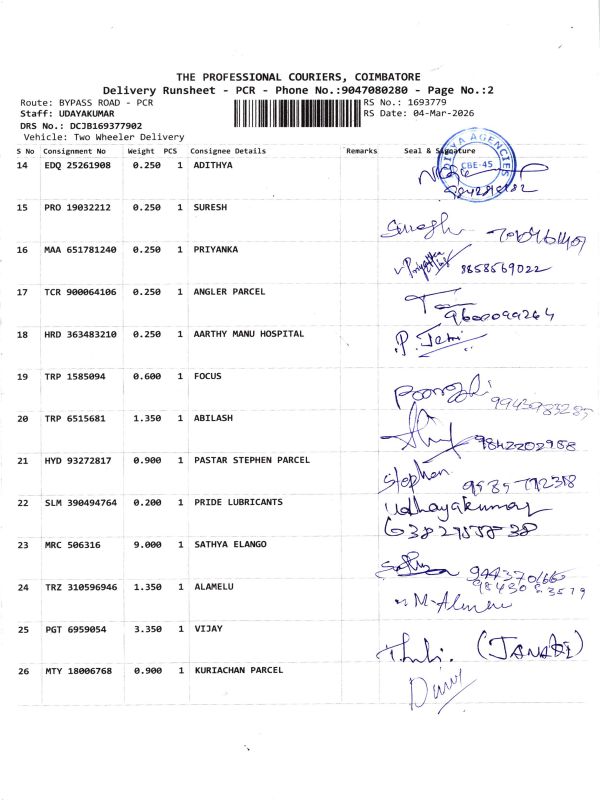 THE PROFESSIONAL COURIERS, COIMBATORE
Delivery Runsheet - PCR - Phone No.:9047080280 - Page No.:2
Route: BYPASS ROAD - PCR
Staff: UDAYAKUMAR
DRS No.: DCJB169377902
Vehicle: Two Wheeler Delivery
RS No.: 1693779
RS Date: 04-Mar-2026
S No Consignment No Weight PCS Consignee Details Remarks Seal & Signature
AGENCIES CBE-45
14 EDQ 25261908 0.250 1 ADITHYA
15 PRO 19032212 0.250 1 SURESH
16 MAA 651781240 0.250 1 PRIYANKA 8658569022
17 TCR 900064106 0.250 1 ANGLER PARCEL 9600099264
18 HRD 363483210 0.250 1 AARTHY MANU HOSPITAL P. Jemi
19 TRP 1585094 0.600 1 FOCUS
20 TRP 6515681 1.350 1 ABILASH 9842202958
21 HYD 93272817 0.900 1 PASTAR STEPHEN PARCEL Stephen
22 SLM 390494764 0.200 1 PRIDE LUBRICANTS Udhayakumar
23 MRC 506316 9.000 1 SATHYA ELANGO
24 TRZ 310596946 1.350 1 ALAMELU
25 PGT 6959054 3.350 1 VIJAY (JANAKI)
26 MTY 18006768 0.900 1 KURIACHAN PARCEL